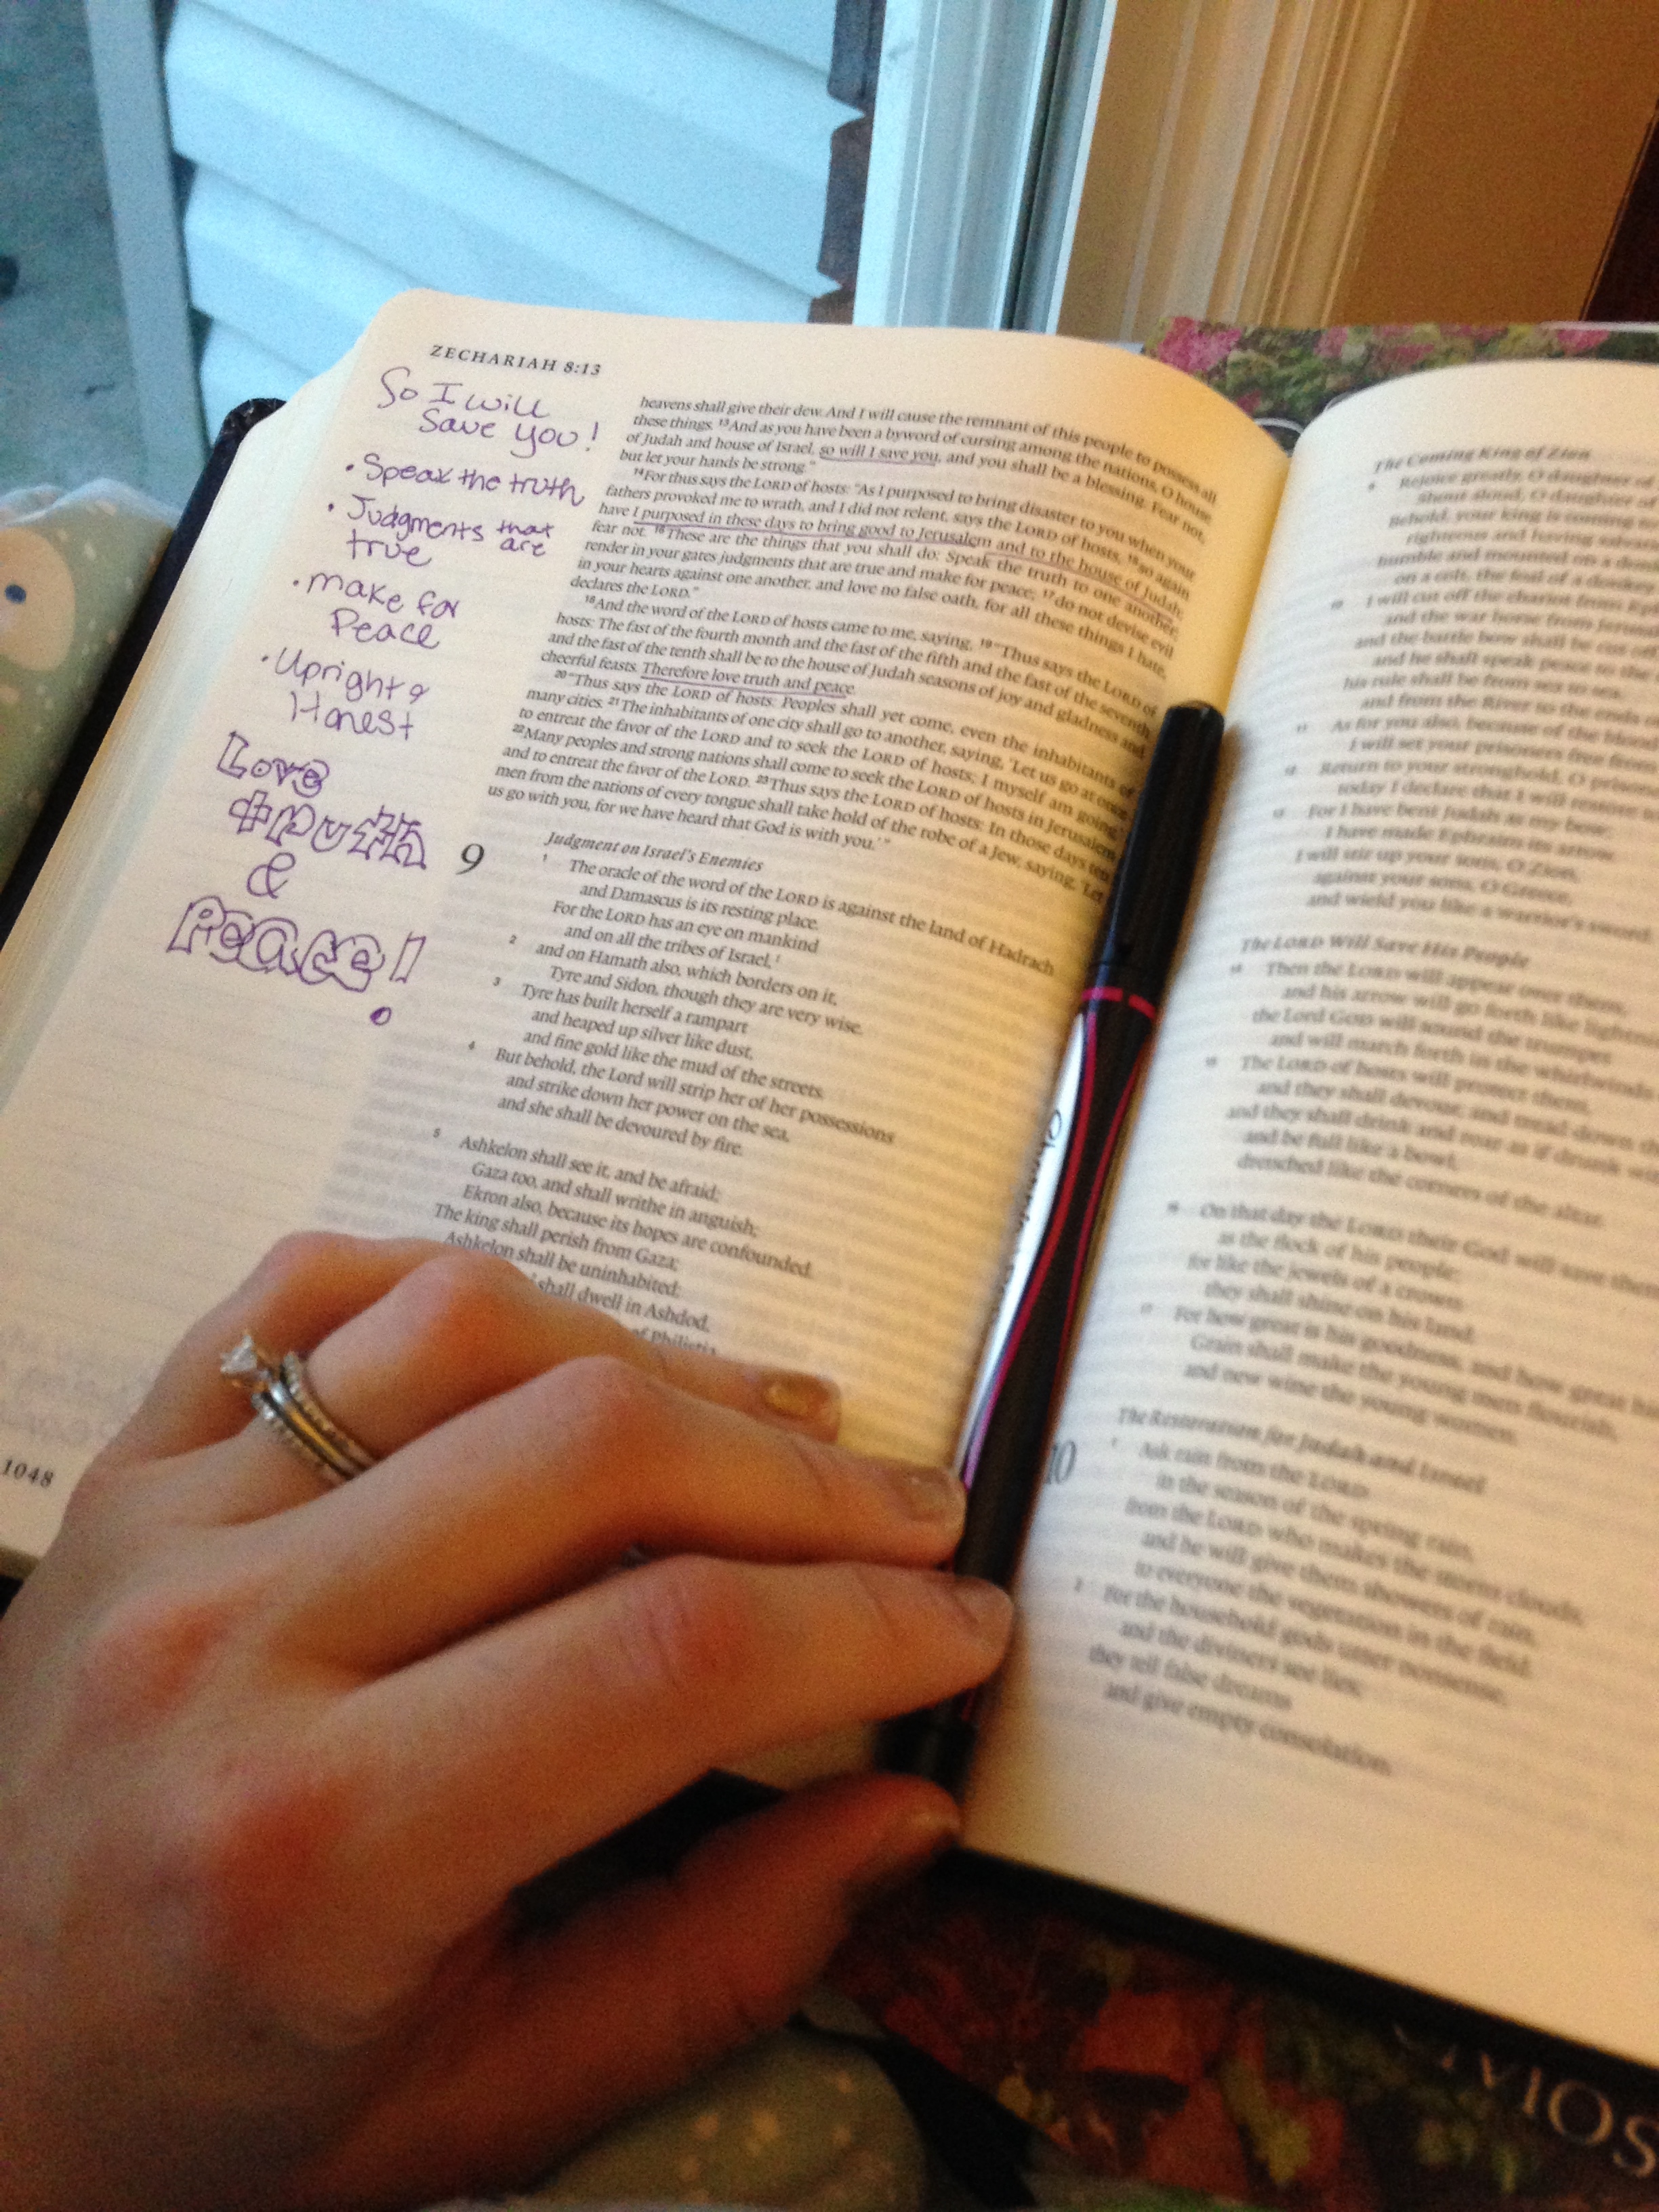 ZECHARIAH 8:13
So I will
Save you!
• Speak the truth
• Judgments that
true are
• make for
Peace
• Upright &
Honest
Love
truth
&
Peace!
heavens shall give their dew. And I will cause the remnant of this people to possess all
these things. 13 And as you have been a byword of cursing among the nations, O house
of Judah and house of Israel, so will I save you, and you shall be a blessing. Fear not,
but let your hands be strong."
14 "For thus says the LORD of hosts: "As I purposed to bring disaster to you when your
fathers provoked me to wrath, and I did not relent, says the LORD of hosts, 15 so again
have I purposed in these days to bring good to Jerusalem and to the house of Judah;
fear not. 16 These are the things that you shall do: Speak the truth to one another;
render in your gates judgments that are true and make for peace; 17 do not devise evil
in your hearts against one another, and love no false oath, for all these things I hate,
declares the LORD."
18 And the word of the LORD of hosts came to me, saying, 19 "Thus says the LORD of
hosts: The fast of the fourth month and the fast of the fifth and the fast of the seventh
and the fast of the tenth shall be to the house of Judah seasons of joy and gladness and
cheerful feasts. Therefore love truth and peace.
20 "Thus says the LORD of hosts: Peoples shall yet come, even the inhabitants of
many cities. 21 The inhabitants of one city shall go to another, saying, 'Let us go at once
to entreat the favor of the LORD and to seek the LORD of hosts; I myself am going.'
22 Many peoples and strong nations shall come to seek the LORD of hosts in Jerusalem
and to entreat the favor of the LORD. 23 Thus says the LORD of hosts: In those days ten
men from the nations of every tongue shall take hold of the robe of a Jew, saying, 'Let
us go with you, for we have heard that God is with you.'"
Judgment on Israel's Enemies
9
1 The oracle of the word of the LORD is against the land of Hadrach
and Damascus is its resting place.
For the LORD has an eye on mankind
and on all the tribes of Israel, 1
2 and on Hamath also, which borders on it,
Tyre and Sidon, though they are very wise.
3 Tyre has built herself a rampart
and heaped up silver like dust,
and fine gold like the mud of the streets.
4 But behold, the Lord will strip her of her possessions
and strike down her power on the sea,
and she shall be devoured by fire.
5 Ashkelon shall see it, and be afraid;
Gaza too, and shall writhe in anguish;
Ekron also, because its hopes are confounded.
The king shall perish from Gaza;
Ashkelon shall be uninhabited;
shall dwell in Ashdod,
of Philistia
1048
The Coming King of Zion
9 Rejoice greatly, O daughter of
shout aloud, O daughter of
Behold, your king is coming to
righteous and having salvation
humble and mounted on a donkey
on a colt, the foal of a donkey
10 I will cut off the chariot from
and the war horse from Jerusalem
and the battle bow shall be cut off
and he shall speak peace to the
his rule shall be from sea to sea
and from the River to the ends of
11 As for you also, because of the blood
I will set your prisoners free from
12 Return to your stronghold, O prisoners
today I declare that I will restore
13 For I have bent Judah as my bow;
I have made Ephraim its arrow.
I will stir up your sons, O Zion,
against your sons, O Greece,
and wield you like a warrior's sword.
The LORD Will Save His People
14 Then the LORD will appear over them,
and his arrow will go forth like lightning
the Lord GOD will sound the trumpet
and will march forth in the whirlwinds
15 The LORD of hosts will protect them,
and they shall devour, and tread down
and they shall drink and roar as if drunk
and be full like a bowl,
drenched like the corners of the altar.
16 On that day the LORD their God will save them
as the flock of his people;
for like the jewels of a crown
they shall shine on his land.
17 For how great is his goodness, and how great
Grain shall make the young men flourish,
and new wine the young women.
The Restoration for Judah and Israel
10
1 Ask rain from the LORD
in the season of the spring rain,
from the LORD who makes the storm clouds,
and he will give them showers of rain,
to everyone the vegetation in the field.
2 For the household gods utter nonsense,
and the diviners see lies;
they tell false dreams
and give empty consolation.